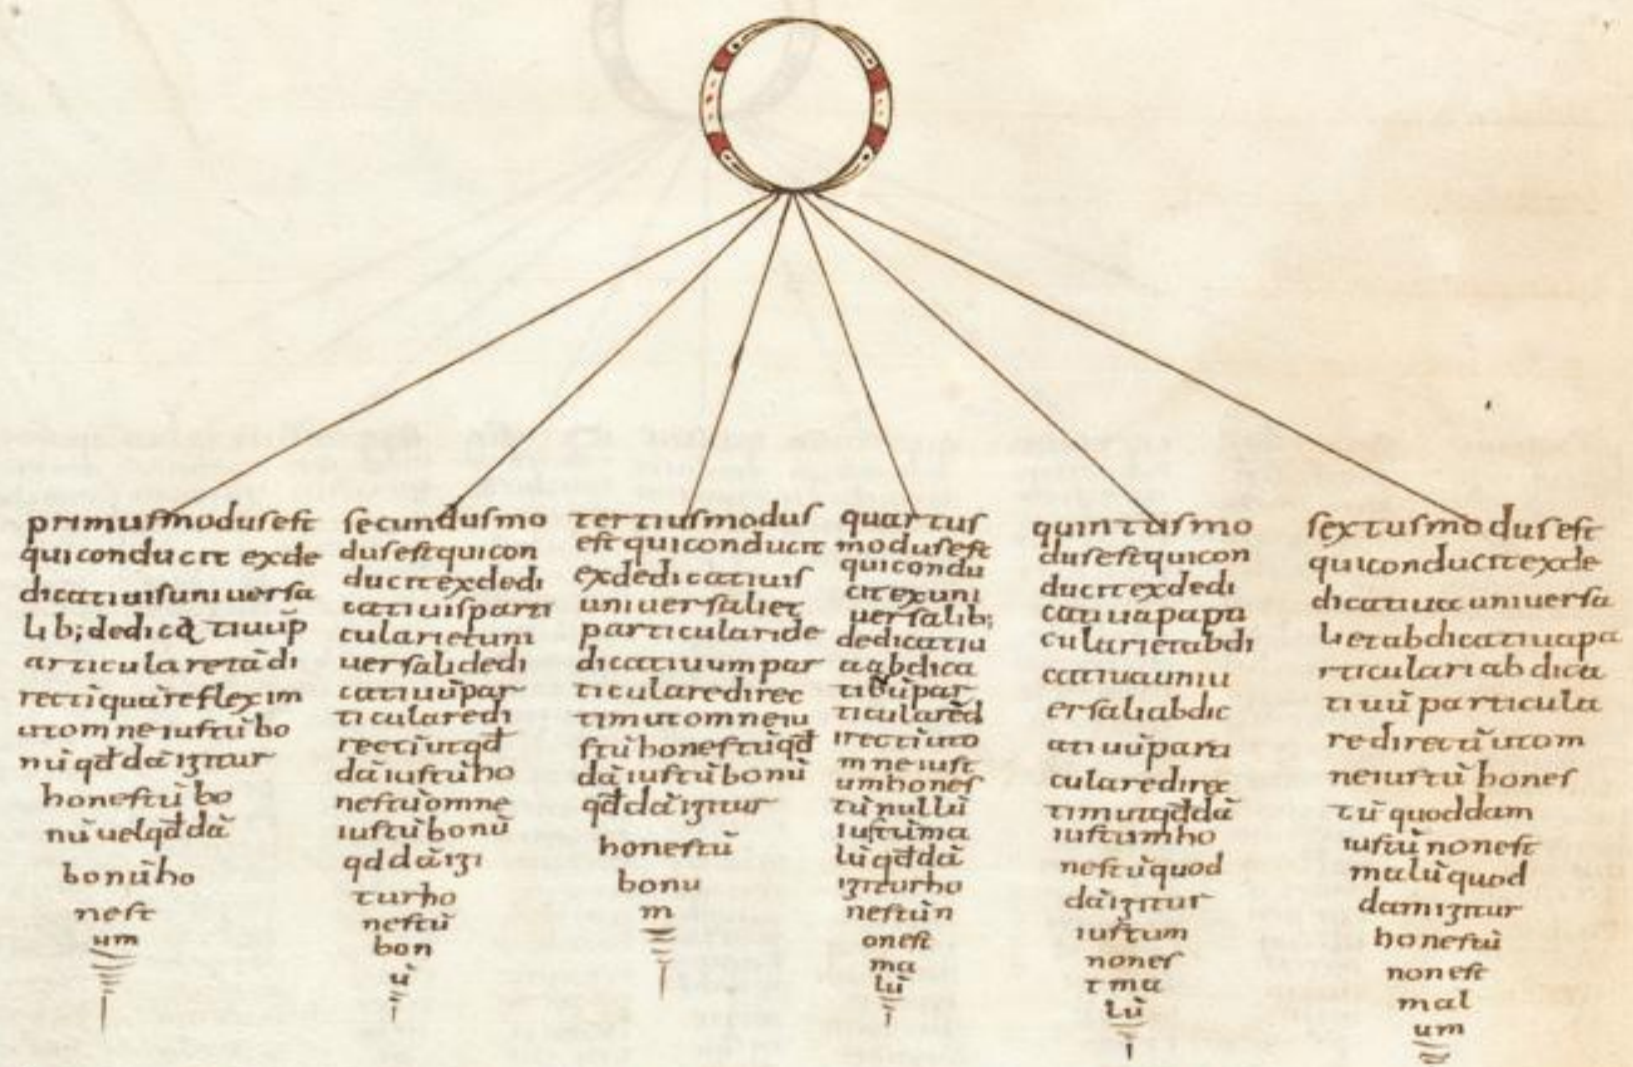 primusmodusest
quiconducit exde
dicatiuisuniuersa
lib; dedicatiuūp
articularetādi
rectiquāreflexim
utomneiustūbo
nū qđdāigitur
honestū bo
nū uelqđdā
bonūho
nest
um
secundusmo
dusestquicon
ducitexdedi
catiuisparti
cularietuni
uersalidedi
catiuūpar
ticularedi
rectiutqđ
dāiustūho
nestūomne
iustūbonū
qđdāigi
turho
nestū
bon
ū
tertiusmodus
est quiconducit
exdedicatiuis
uniuersaliet
particularide
dicatiuumpar
ticularedirec
timutomneiu
stūhonestūqđ
dāiustūbonū
qđdāigitur
honestū
bonu
m
quartus
modusest
quicondu
citexuni
uersalib;
dedicatiu
aabdica
tibūpar
ticularēd
irectiuto
mneiust
umhones
tū nullū
iustūma
lūqđdā
igiturho
nestūn
onest
ma
lū
quintusmo
dusestquicon
ducitexdedi
catiuapapti
cularietabdi
catiuauniu
ersaliabdic
atiuūparti
cularedirec
timutqđdā
iustumho
nestūquod
dāigitur
iustum
nones
tma
lū
sextusmodusest
quiconducitexde
dicatiua uniuersa
lietabdicatiuapa
rticulariabdica
tiuū particula
redirectūutom
neiustū hones
tū quoddam
iustū nonest
malūquod
damigitur
honestū
nonest
mal
um